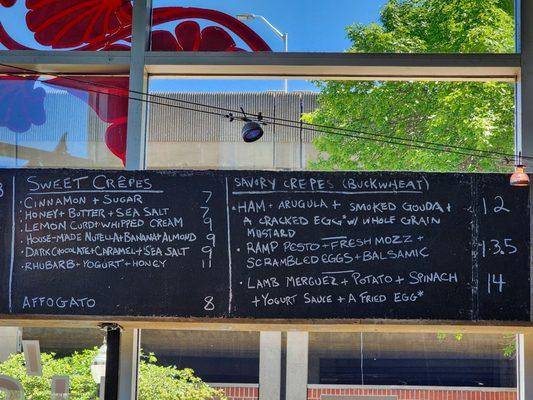 SWEET CRÊPES
CINNAMON + SUGAR 7
HONEY + BUTTER + SEA SALT 7
LEMON CURD + WHIPPED CREAM 9
HOUSE-MADE NUTELLA + BANANA + ALMOND 9
DARK CHOCOLATE + CARAMEL + SEA SALT 9
RHUBARB + YOGURT + HONEY 11
AFFOGATO 8
SAVORY CREPES (BUCKWHEAT)
HAM + ARUGULA + SMOKED GOUDA + 12
A CRACKED EGG* W/ WHOLE GRAIN
MUSTARD
RAMP PESTO + FRESH MOZZ + 13.5
SCRAMBLED EGGS + BALSAMIC
LAMB MERGUEZ + POTATO + SPINACH 14
+ YOGURT SAUCE + A FRIED EGG*